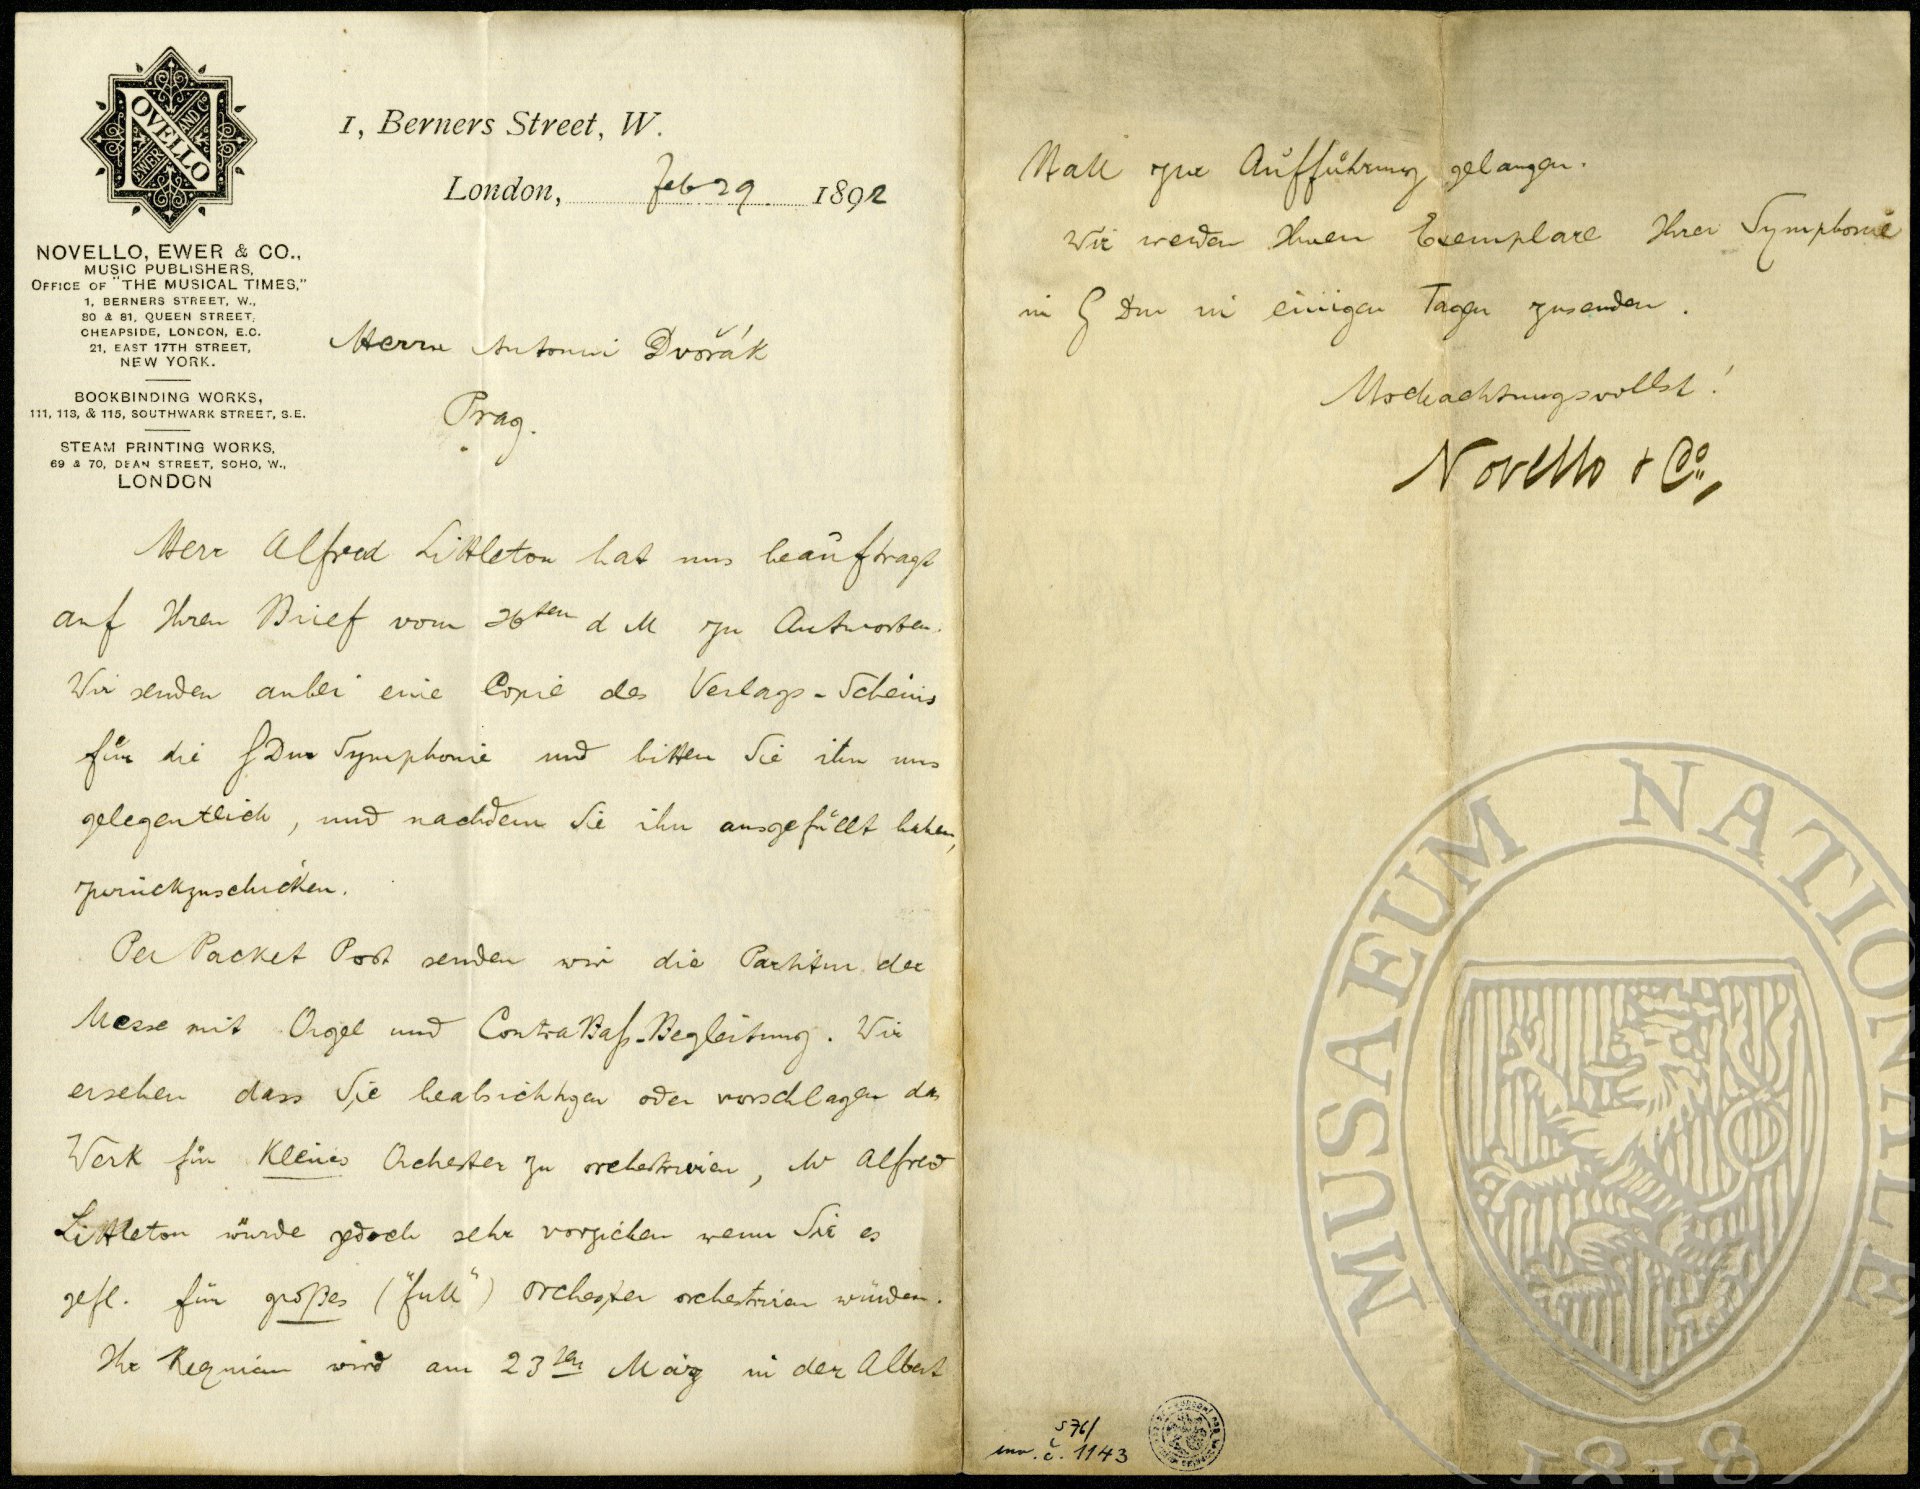 NOVELLO AND EWER CO
1, Berners Street, W.
London, Feb 29 1892
NOVELLO, EWER & CO.,
MUSIC PUBLISHERS,
OFFICE OF "THE MUSICAL TIMES,"
1, BERNERS STREET, W.,
80 & 81, QUEEN STREET,
CHEAPSIDE, LONDON, E.C.
21, EAST 17TH STREET,
NEW YORK.
BOOKBINDING WORKS,
111, 113, & 115, SOUTHWARK STREET, S.E.
STEAM PRINTING WORKS,
69 & 70, DEAN STREET, SOHO, W.,
LONDON
Herrn Antonin Dvořák
Prag.
Herr Alfred Littleton hat uns beauftragt
auf Ihren Brief vom 26ten d M zu Antworten.
Wir senden anbei eine Copie des Verlags-Scheins
für die G Dur Symphonie und bitten Sie ihn uns
gelegentlich, und nachdem Sie ihn ausgefüllt haben,
zurückzuschicken.
Per Packet Post senden wir die Partitur der
Messe mit Orgel und ContraBaß-Begleitung. Wir
ersehen dass Sie beabsichtigen oder vorschlagen das
Werk für Kleines Orchester zu orchestriren, Mr Alfred
Littleton würde jedoch sehr vorziehen wenn Sie es
gefl. für großes ("full") Orchester orchestriren würden.
Ihr Requiem wird am 23ten März in der Albert
Hall zur Aufführung gelangen.
Wir werden Ihnen Exemplare Ihrer Symphonie
in G Dur in einigen Tagen zusenden.
Hochachtungsvollst!
Novello & Co.,
576/
inv. č. 1143
MUSAEUM NATIONALE
1818